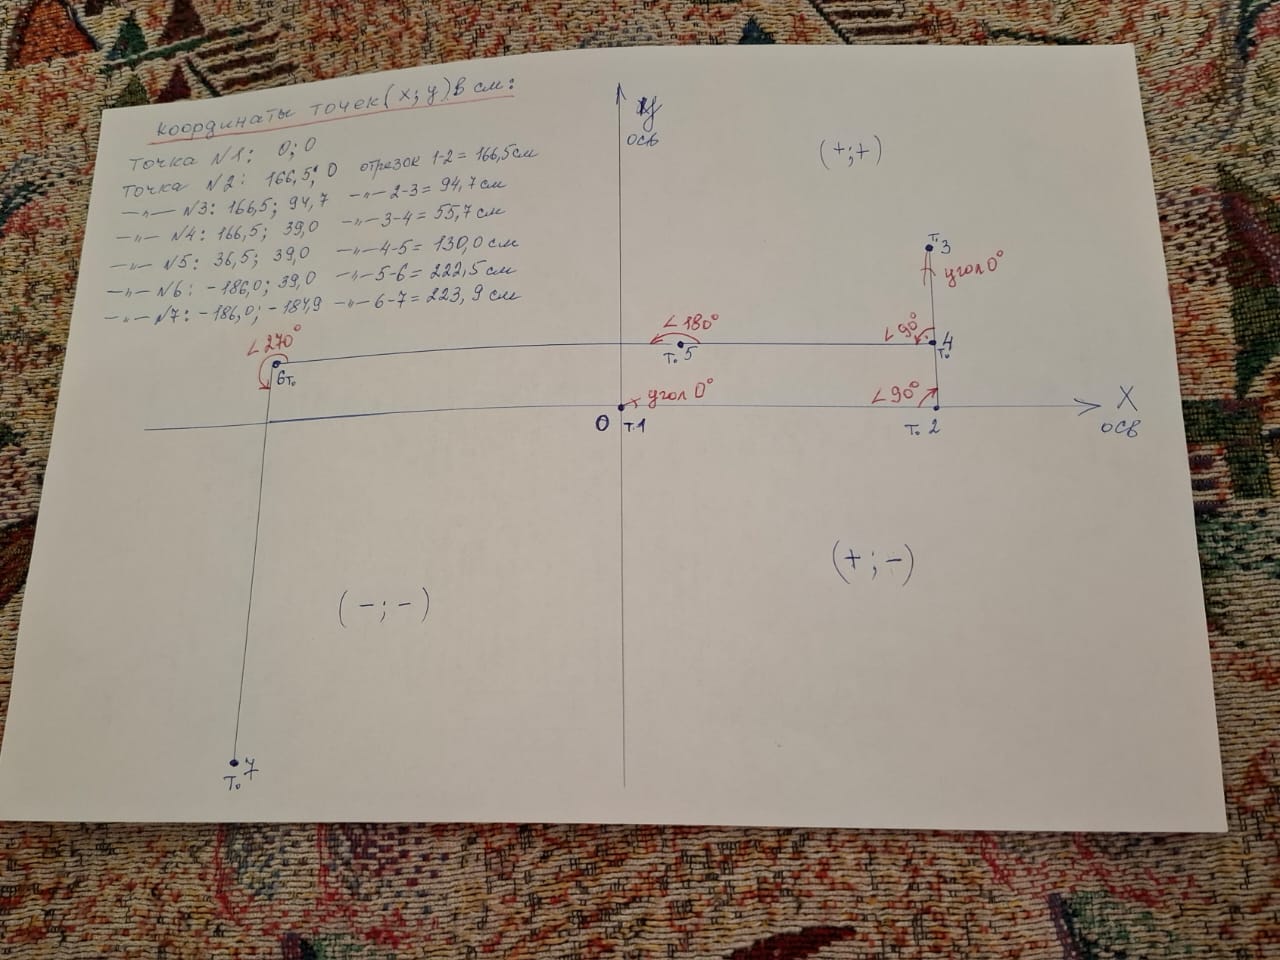 Координаты точек (х; у) в см:
Точка №1: 0; 0
Точка №2: 166,5; 0 отрезок 1-2 = 166,5 см
—„— №3: 166,5; 94,7 —„— 2-3 = 94,7 см
—„— №4: 166,5; 39,0 —„— 3-4 = 55,7 см
—„— №5: 36,5; 39,0 —„— 4-5 = 130,0 см
—„— №6: -186,0; 39,0 —„— 5-6 = 222,5 см
—„— №7: -186,0; -184,9 —„— 6-7 = 223,9 см
у
ось
(+;+)
т.3
угол 0°
∠270°
∠180°
∠90°
6т.
т.5
4
т.
угол 0°
∠90°
0 т.1
т.2
X
ось
(+;-)
(-;-)
т.7